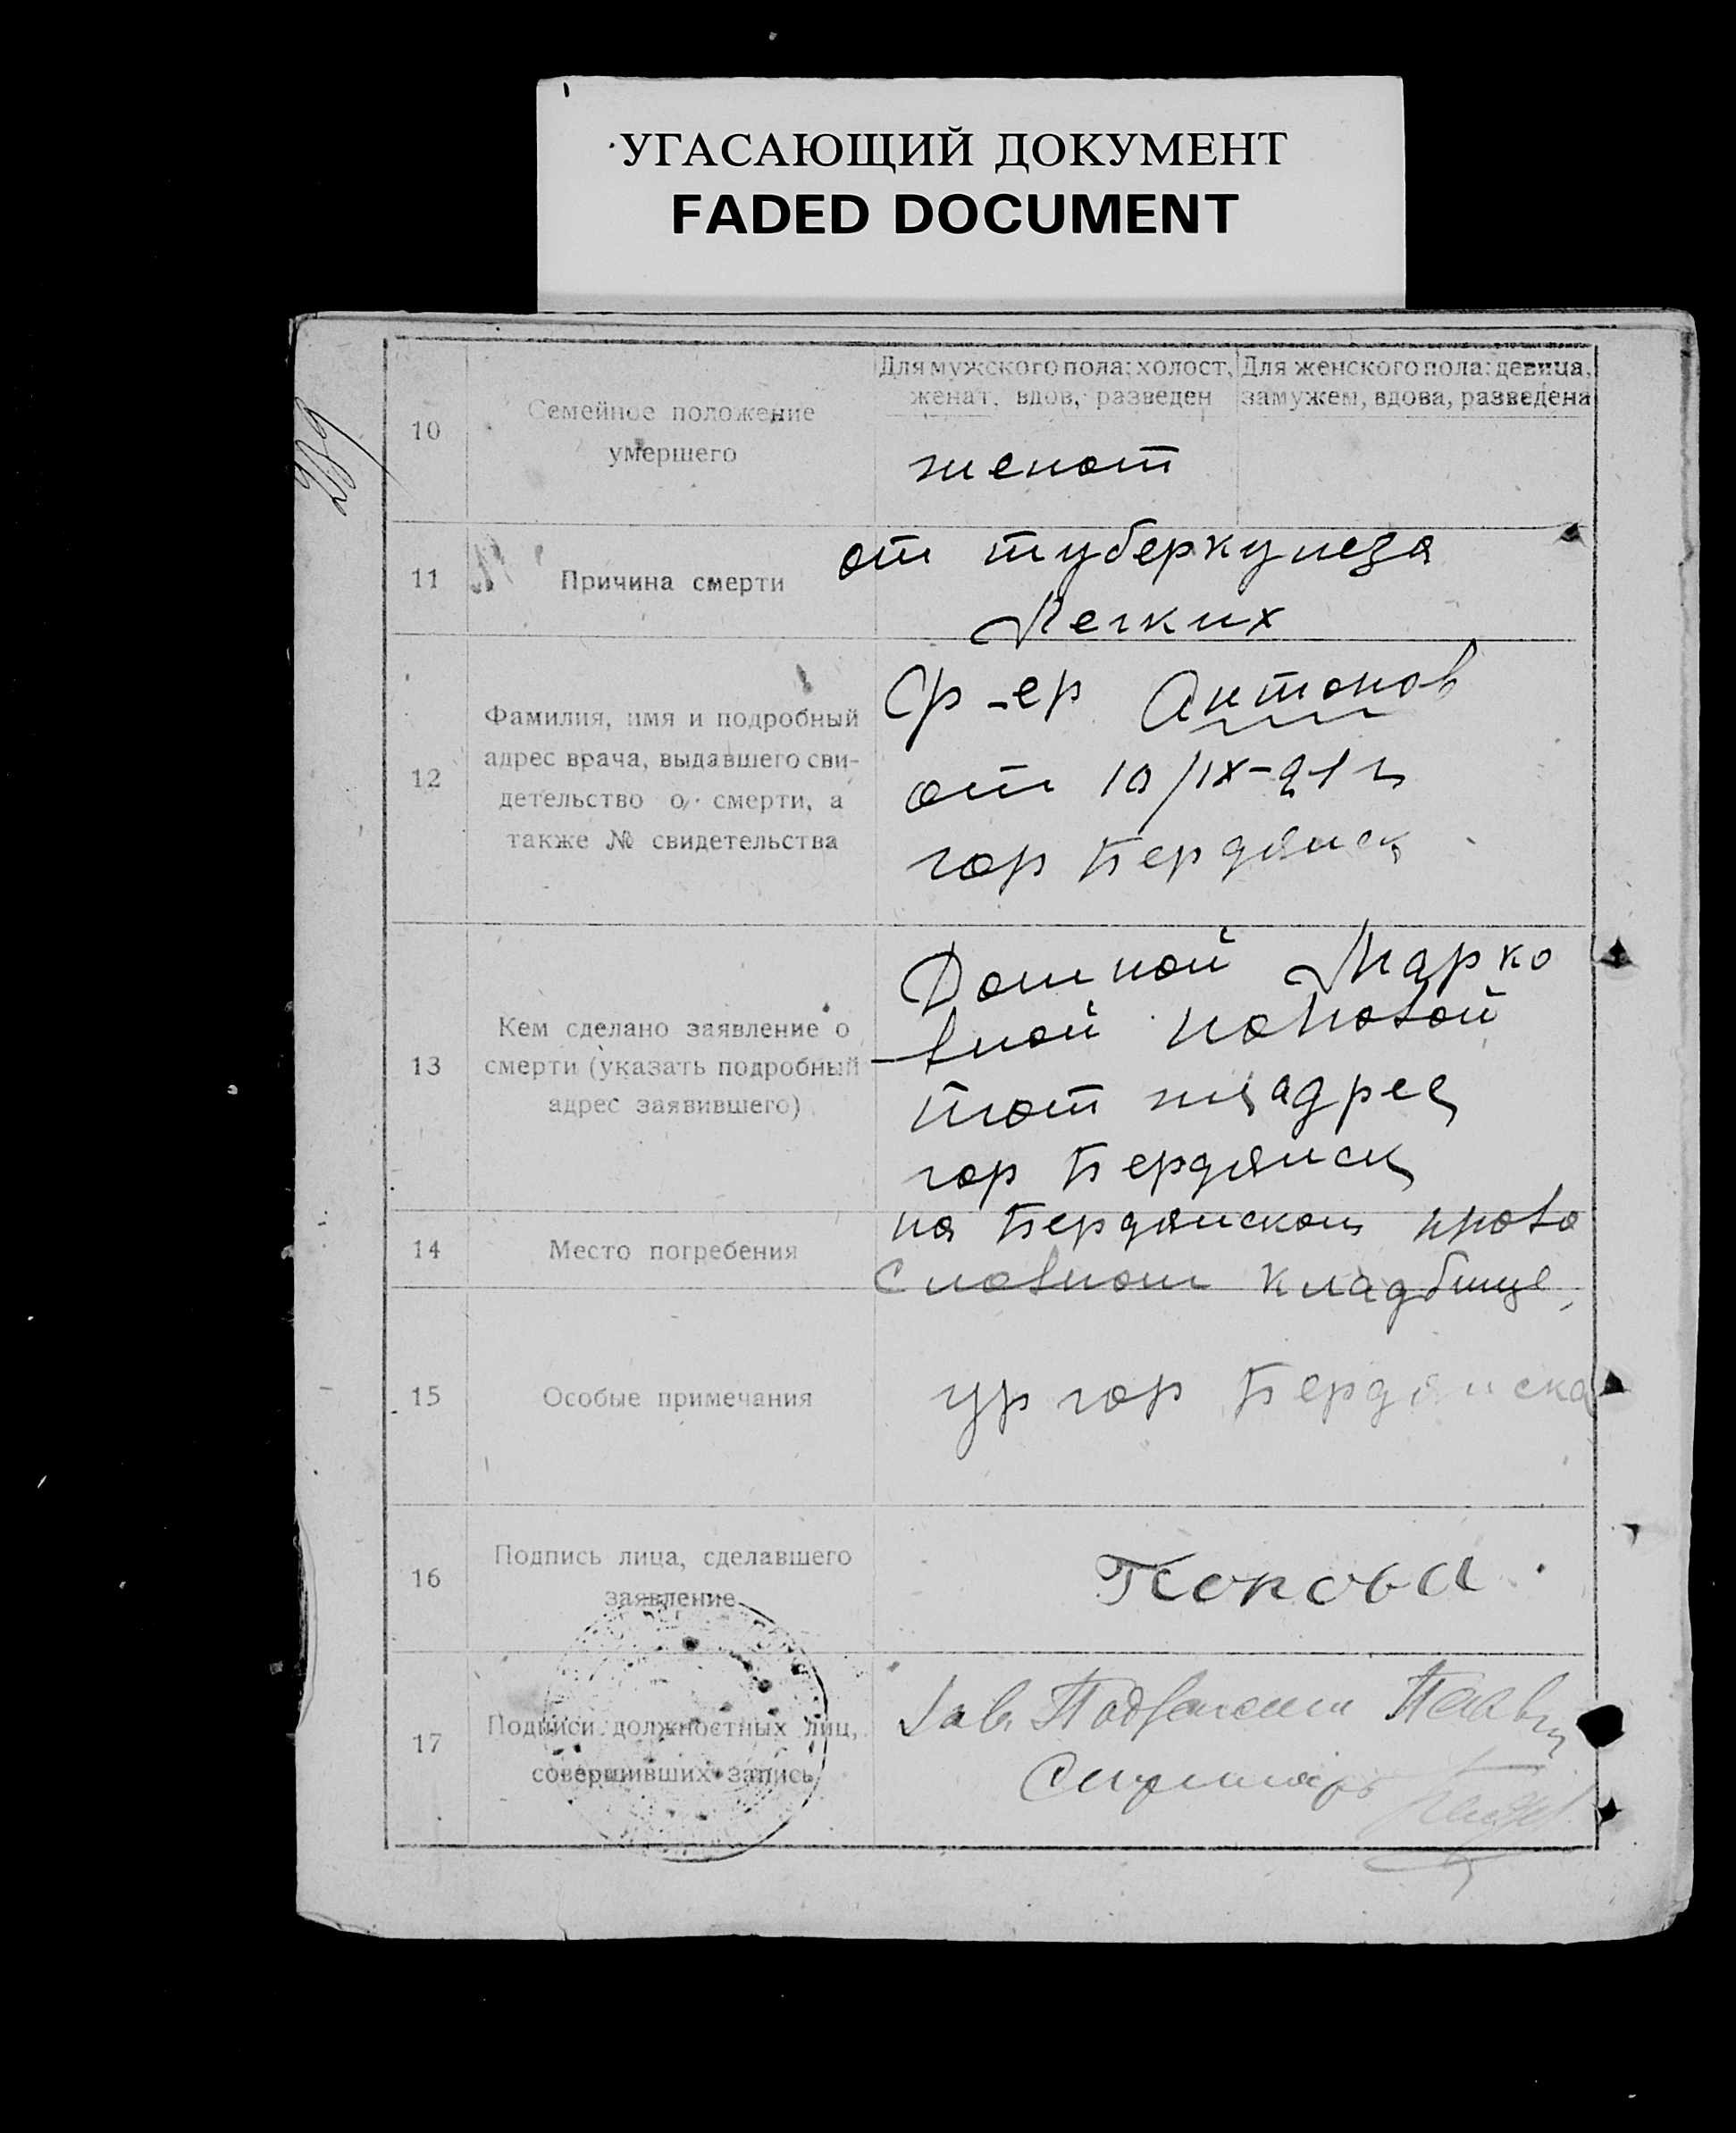 УГАСАЮЩИЙ ДОКУМЕНТ
FADED DOCUMENT
289
10
Семейное положение
умершего
Для мужского пола: холост,
женат, вдов, разведен
Для женского пола: девица,
замужем, вдова, разведена
женат
11
Причина смерти
от туберкулеза
Легких
12
Фамилия, имя и подробный
адрес врача, выдавшего сви-
детельство о смерти, а
также № свидетельства
Антонов
от 10/IX-21 г
гор Бердянск
13
Кем сделано заявление о
смерти (указать подробный
адрес заявившего)
Домной Марко
вной Поповой
тот же адрес
гор Бердянск
14
Место погребения
на Бердянском право
славном кладбище
15
Особые примечания
ур гор Бердянска
16
Подпись лица, сделавшего
заявление
Попова
17
Подписи должностных лиц,
совершивших запись
Зав.